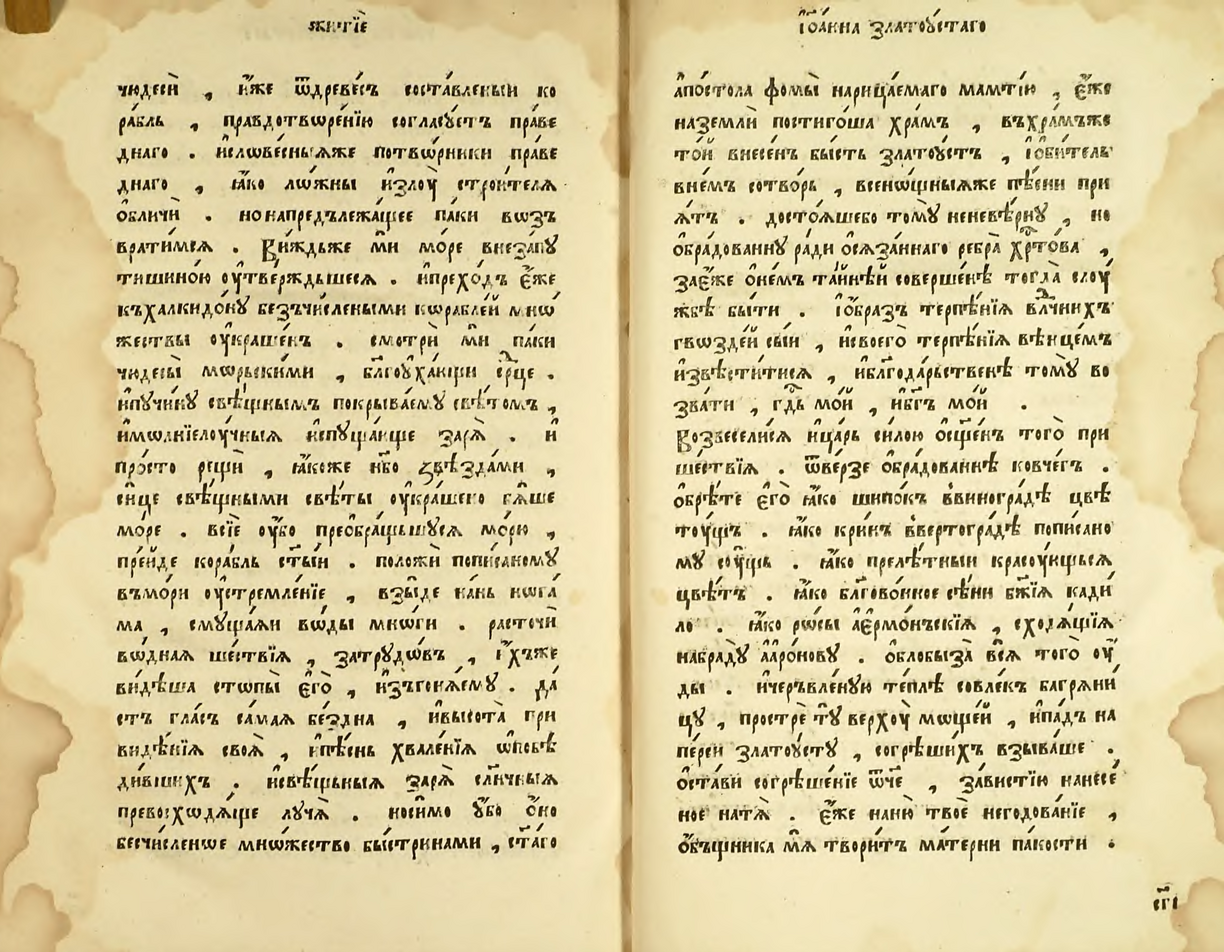 житїѐ
чюдесѝ , и҆́же ѿдреве́съ соста́вленыи ко
ра́бль , правдотвѡре́нїю согласꙋ́етъ пра́ве
днаго . и҆слѡве́сныѧже потвѡ́рники пра́ве
днаго , ꙗ҆́кѡ лѡ́жны и҆злоу̀ строи́телѧ
ѡ҆бличѝ . нонапредълежа́щее па́ки вѡзъ
врати́мсѧ . Ви́ждьже мѝ мо́ре внеза́пꙋ
тишино́ю оу҆тве́рждьшеесѧ . и҆прехо́дъ е҆́же
къхалкидо́нꙋ безъчи́слеными кѡраблє́й мнѡ
жествы оу҆кра́шенъ . смотрѝ мѝ па́ки
чюдесы̀ мѡрьски́ми , бл҃гоꙋха́ющи ср҃це .
и҆пꙋчи́нꙋ свѣ́щнымъ покрыва́емꙋ свѣ́томъ ,
и҆мѡлнїелоу́чныѧ и҆спꙋща́юще зарѧ̀ . и҆
про́сто рещѝ , ꙗ҆́коже нб҃о ѕвѣзда́ми ,
си́це свѣ́щными свѣ́ты оу҆кра́шено бѧ́ше
мо́ре . всїѐ оу҆́бо преѡбра́щьшꙋсѧ мо́рю ,
пре́йде кора́бль ст҃ы́и . положѝ попи́саномꙋ
въмо́ри оу҆стремле́нїе , взы́де ка́нь нѡга̀
ма , смꙋща́ѧи вѡ́ды мнѡ́ги . расточѝ
вѡ́днаѧ ше́ствїѧ , затрꙋдѡ́въ , и҆́хъже
ви́дѣша стѡпы̀ е҆гѡ̀ , и҆зъгонѧ́емꙋ . да
стъ гла́съ са́маѧ бе́здна , и҆высота̀ при
ви́дѣнїѧ своѧ̀ , и҆пѣ́снь хвале́нїѧ ѡ҆повѣ́
дивших̾ъ . и҆свѣ́щьныѧ зарѧ̀ сл҃нчныѧ
превосхѡдѧ́ще лꙋчѧ̀ . носи́мо ꙋ҆́бо ѻ҆́но
бесчи́сленѡе мнѡ́жество бы́стринами , ст҃а́го
і҆ѡа́нна златоꙋ́стаго
а҆по́стола фомы̀ нарица́емаго мамті́ю , е҆́же
назємлѝ пости́гоша хра́мъ , въхра́мъже
то́й внесе́нъ бы́сть златоꙋ́стъ , і҆ѡби́тель
вне́мъ сотво́рь , всенѡ́щныѧже пѣ́сни при
ѧ́тъ . досто́ѧшебо томꙋ̀ неневѣ́рнꙋ , но
ѡ҆бра́дованнꙋ ради ѡ҆сѧза́ннаго ребра̀ хр҃то́ва ,
зае҆́же ѻ҆не́мъ та́йнѣй совершє́нѣ тогда̀ слоу́
жбѣ бы́ти . і҆ѻ́бразъ терпѣ́нїѧ вл҃чнихъ
гвѡзде́й сы́и , и҆своегѡ̀ терпѣ́нїѧ вѣнце́мъ
и҆звѣсти́тисѧ , и҆благода́рьственѣ томꙋ̀ во
зва́ти , гд҃ь мо́й , и҆бг҃ъ мо́й .
Возвесели́сѧ и҆ца́рь си́лою ѡ҆сще́нъ того̀ при
ше́ствїѧ . ѿве́рзе ѡ҆бра́дованнѣ ковче́гъ .
ѡ҆брѣ́те е҆гѡ̀ ꙗ҆́ко шипо́къ в҆виногра́дѣ цвѣ
тоу́щъ . ꙗ҆́ко кри́нъ в҆вертогра́дѣ попи́сано
мꙋ соу́щь . ꙗ҆́ко прелѣ́тныи красоую́щьсѧ
цвѣ́тъ . ꙗ҆́ко бл҃гово́нное сѣ́ни бж҃їѧ кади́
ло . ꙗ҆́ко рѡсы̀ а҆ермо́нъскїѧ , сходѧ́щїѧ
набрадꙋ̀ а҆арѡ́новꙋ . ѡ҆блобыза̀ всѧ̀ того̀ оу҆́
ды . и҆черъвле́нꙋю те́плѣ совле́къ багрѧни́
цꙋ , прострѐ тꙋ̀ верхоу̀ мѡще́й , и҆па́дъ на
пе́рси златоꙋ́стꙋ , согрѣши́хъ взыва́ше .
ѡ҆ста́ви согрѣше́нїе ѿ҃че , за́вистїю нанесе́
ное натѧ̀ . е҆́же наню̀ твоѐ негодова́нїе ,
ѻ҆́бъщника мѧ̀ твори́тъ ма́терни па́кости .
сг҃і